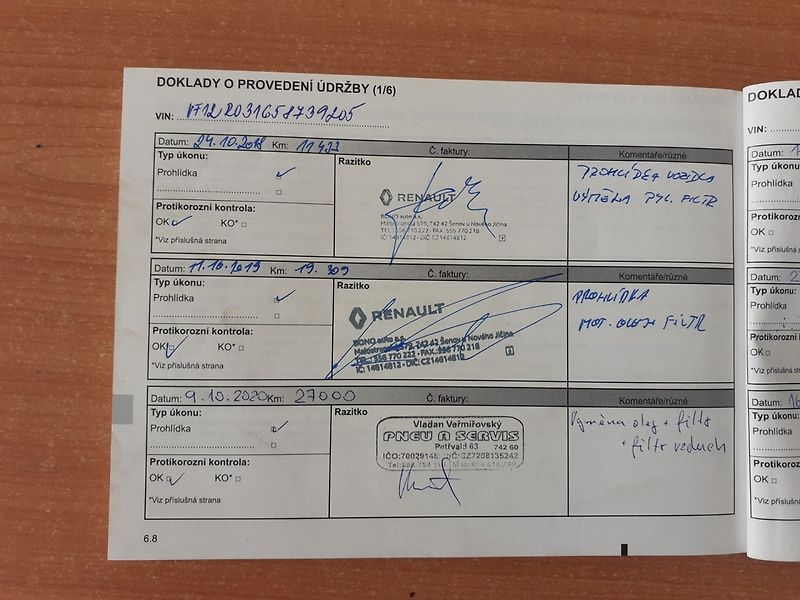 DOKLADY O PROVEDENÍ ÚDRŽBY (1/6)
VIN:
Datum: 24.10.2018 Km: Č. faktury: Komentáře/různé
Typ úkonu: Razítko
Prohlídka
PROHLÍDKA VOZIDLA
VÝMĚNA PYL. FILTR
RENAULT
BONO auto a.s.
Malostranská 579, 742 42 Šenov u Nového Jičína
TEL.: 556 770 222 - FAX.: 556 770 218
IČ: 14614812 - DIČ: CZ14614812
Protikorozní kontrola:
OK KO*
*Viz příslušná strana
Datum: 11.10.2019 Km: 19.309 Č. faktury: Komentáře/různé
Typ úkonu: Razítko
Prohlídka
PROHLÍDKA
MOT. OLEJ+ FILTR
RENAULT
BONO auto a.s.
Malostranská 579, 742 42 Šenov u Nového Jičína
TEL.: 556 770 222 - FAX.: 556 770 218
IČ: 14614812 - DIČ: CZ14614812
Protikorozní kontrola:
OK KO*
*Viz příslušná strana
Datum: 9.10.2020 Km: 27000 Č. faktury: Komentáře/různé
Typ úkonu: Razítko
Prohlídka
Výměna olej + filtr
+ filtr vzduch
Vladan Veřmiřovský
PNEU A SERVIS
Petřvald 63 742 60
Protikorozní kontrola:
OK KO*
*Viz příslušná strana
6.8
VIN:
Datum:
Typ úkonu:
Prohlídka
OK
*Viz příslušná
Datum:
Typ úkonu:
Prohlídka
OK
*Viz příslušná
Datum: 16
Prohlídka
OK
*Viz příslušná